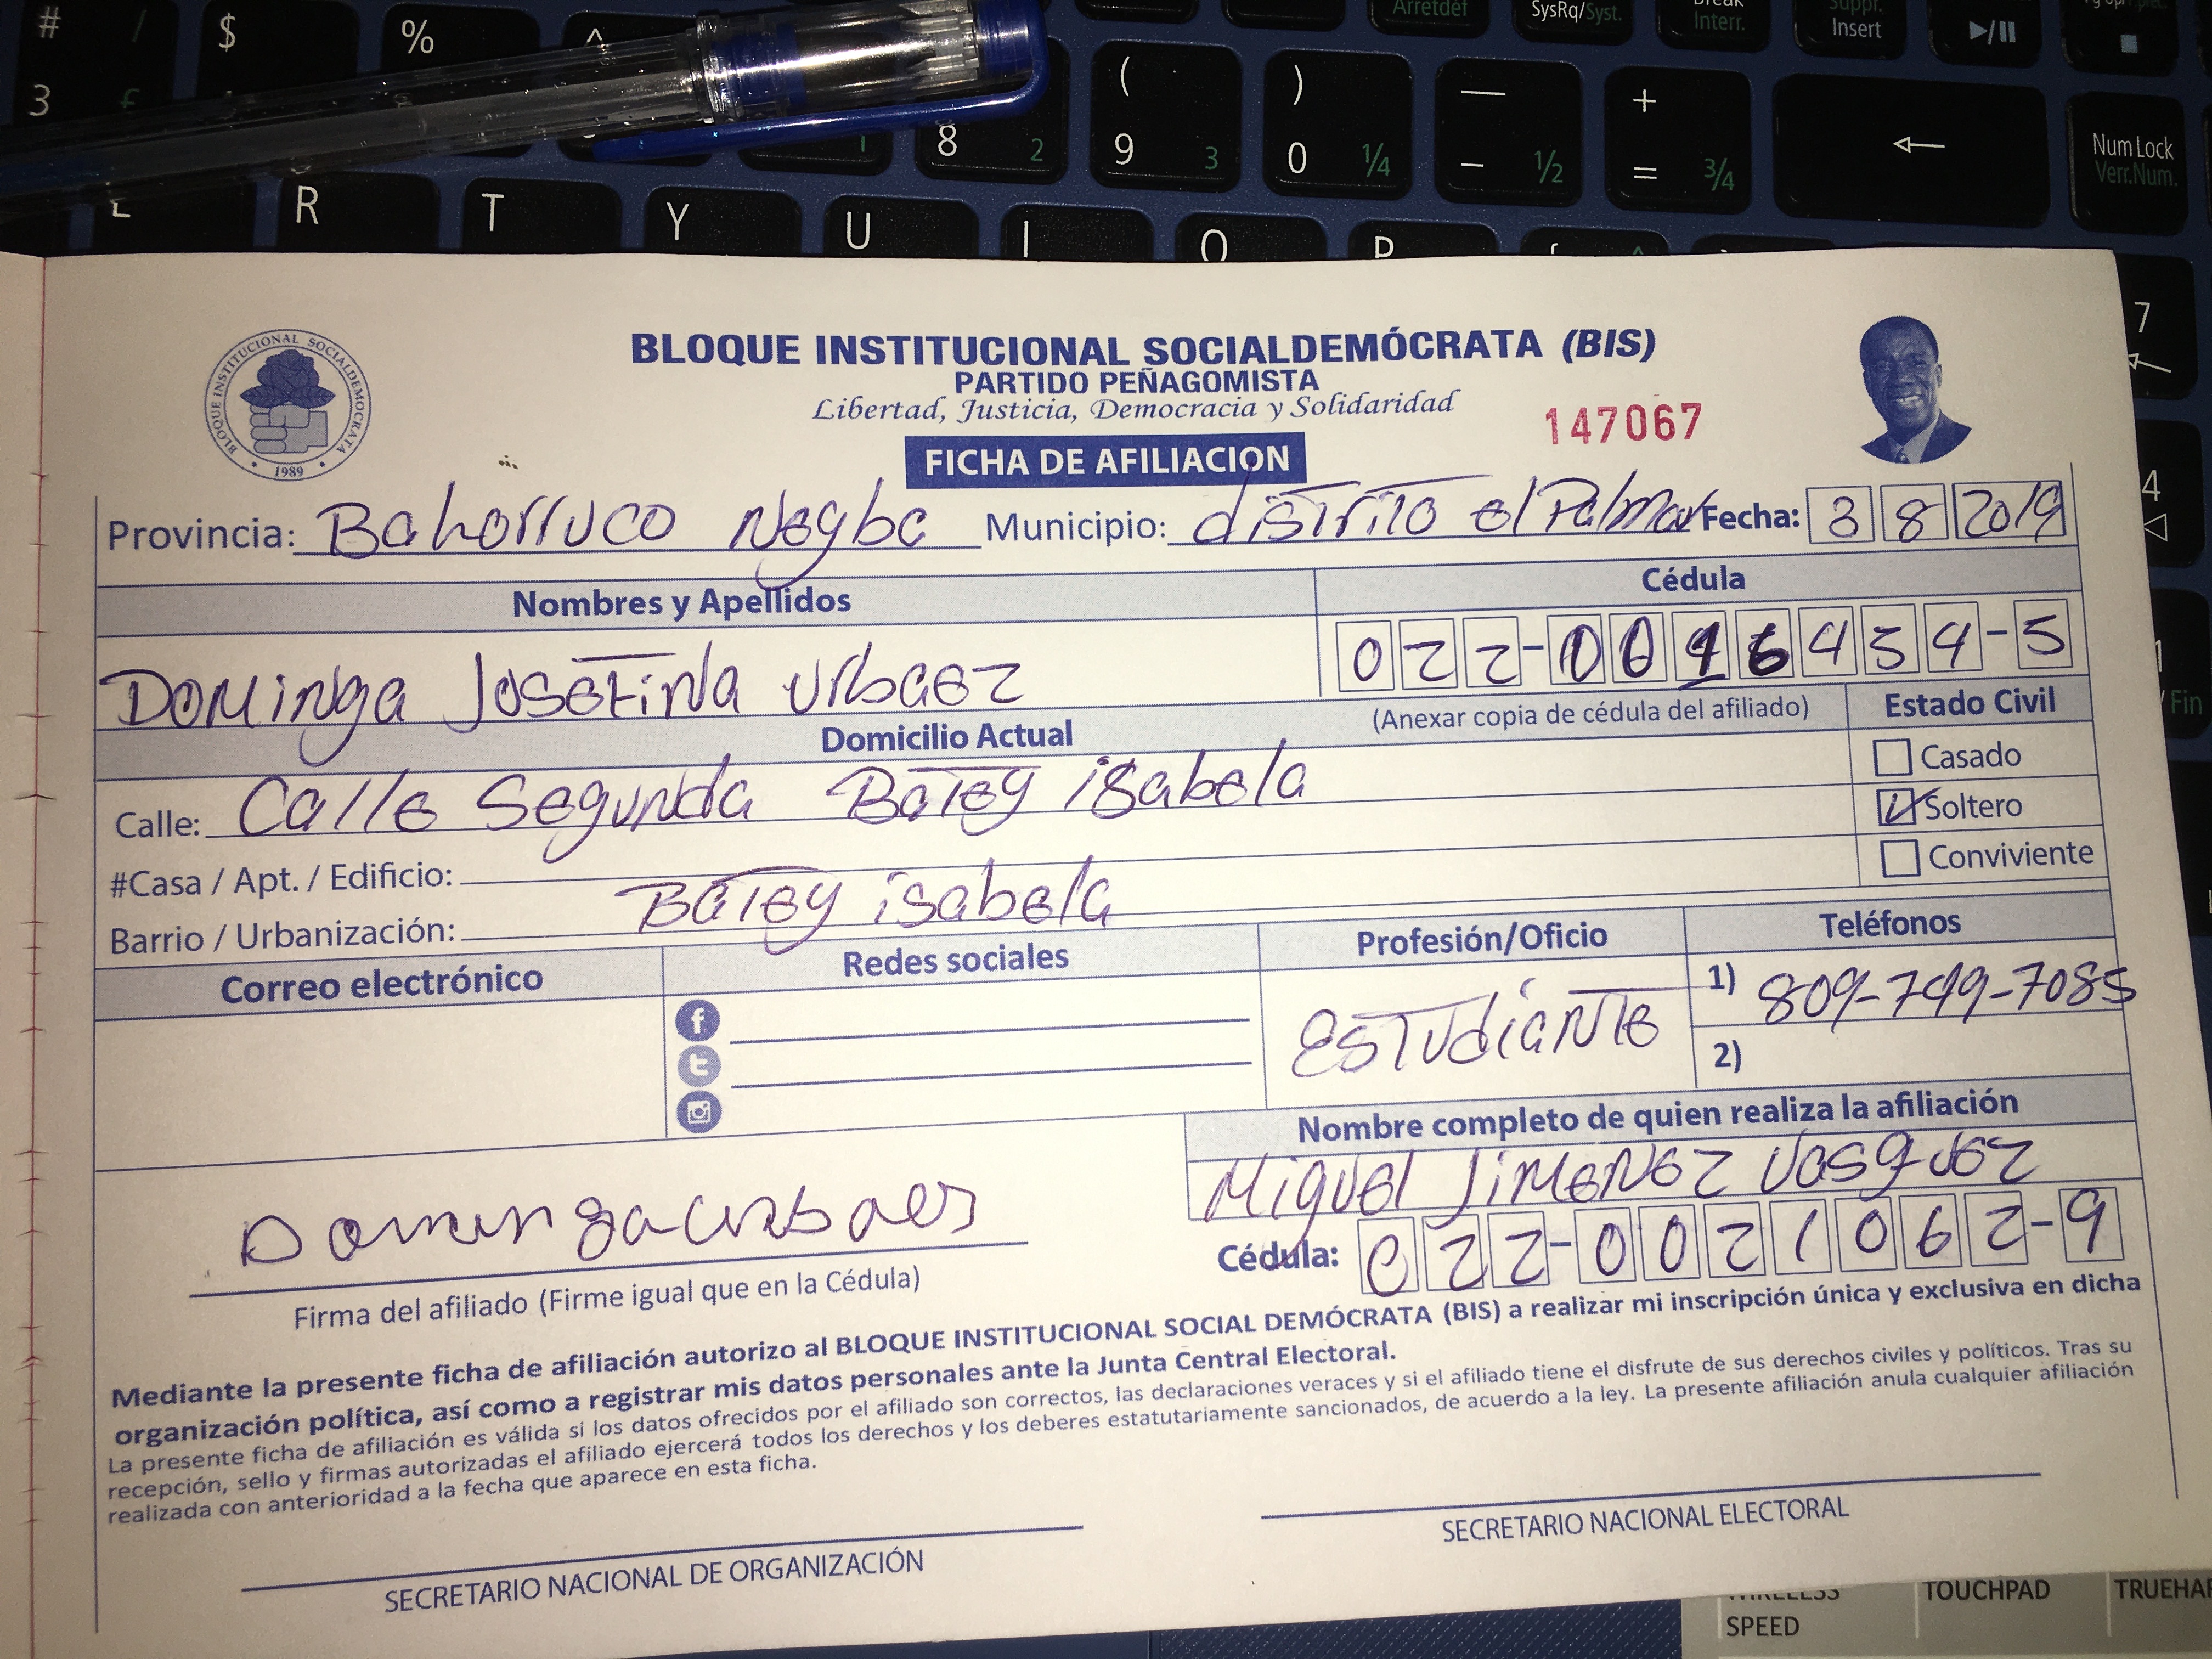 # / $ % ^ Arretdéf SysRq/Syst. Break Interr. Suppr. Insert
3 £ 8 2 ( 9 3 ) 0 ¼ — - ½ + = ¾ Num Lock Verr.Num.
E R T Y U I O P
7
4
Fin
BLOQUE INSTITUCIONAL SOCIALDEMOCRATA
1989
BLOQUE INSTITUCIONAL SOCIALDEMÓCRATA (BIS)
PARTIDO PEÑAGOMISTA
Libertad, Justicia, Democracia y Solidaridad
147067
FICHA DE AFILIACION
Provincia: Bahorruco Neyba Municipio: distrito el Palmar Fecha: 3 8 2019
Nombres y Apellidos Cédula
Dominga Josefina Urbaez 022-0016454-5
(Anexar copia de cédula del afiliado) Estado Civil
Domicilio Actual
Casado
Calle: Calle Segunda Batey isabela
Soltero
#Casa / Apt. / Edificio:
Conviviente
Barrio / Urbanización: Batey isabela
Correo electrónico Redes sociales Profesión/Oficio Teléfonos
Estudiante 1) 809-749-7085
2)
Nombre completo de quien realiza la afiliación
Miguel Jimenez Vasquez
Dominga urbaes
Cédula: 022-0021062-9
Firma del afiliado (Firme igual que en la Cédula)
Mediante la presente ficha de afiliación autorizo al BLOQUE INSTITUCIONAL SOCIAL DEMÓCRATA (BIS) a realizar mi inscripción única y exclusiva en dicha
organización política, así como a registrar mis datos personales ante la Junta Central Electoral.
La presente ficha de afiliación es válida si los datos ofrecidos por el afiliado son correctos, las declaraciones veraces y si el afiliado tiene el disfrute de sus derechos civiles y políticos. Tras su
recepción, sello y firmas autorizadas el afiliado ejercerá todos los derechos y los deberes estatutariamente sancionados, de acuerdo a la ley. La presente afiliación anula cualquier afiliación
realizada con anterioridad a la fecha que aparece en esta ficha.
SECRETARIO NACIONAL DE ORGANIZACIÓN
SECRETARIO NACIONAL ELECTORAL
WIRELESS
SPEED
TOUCHPAD